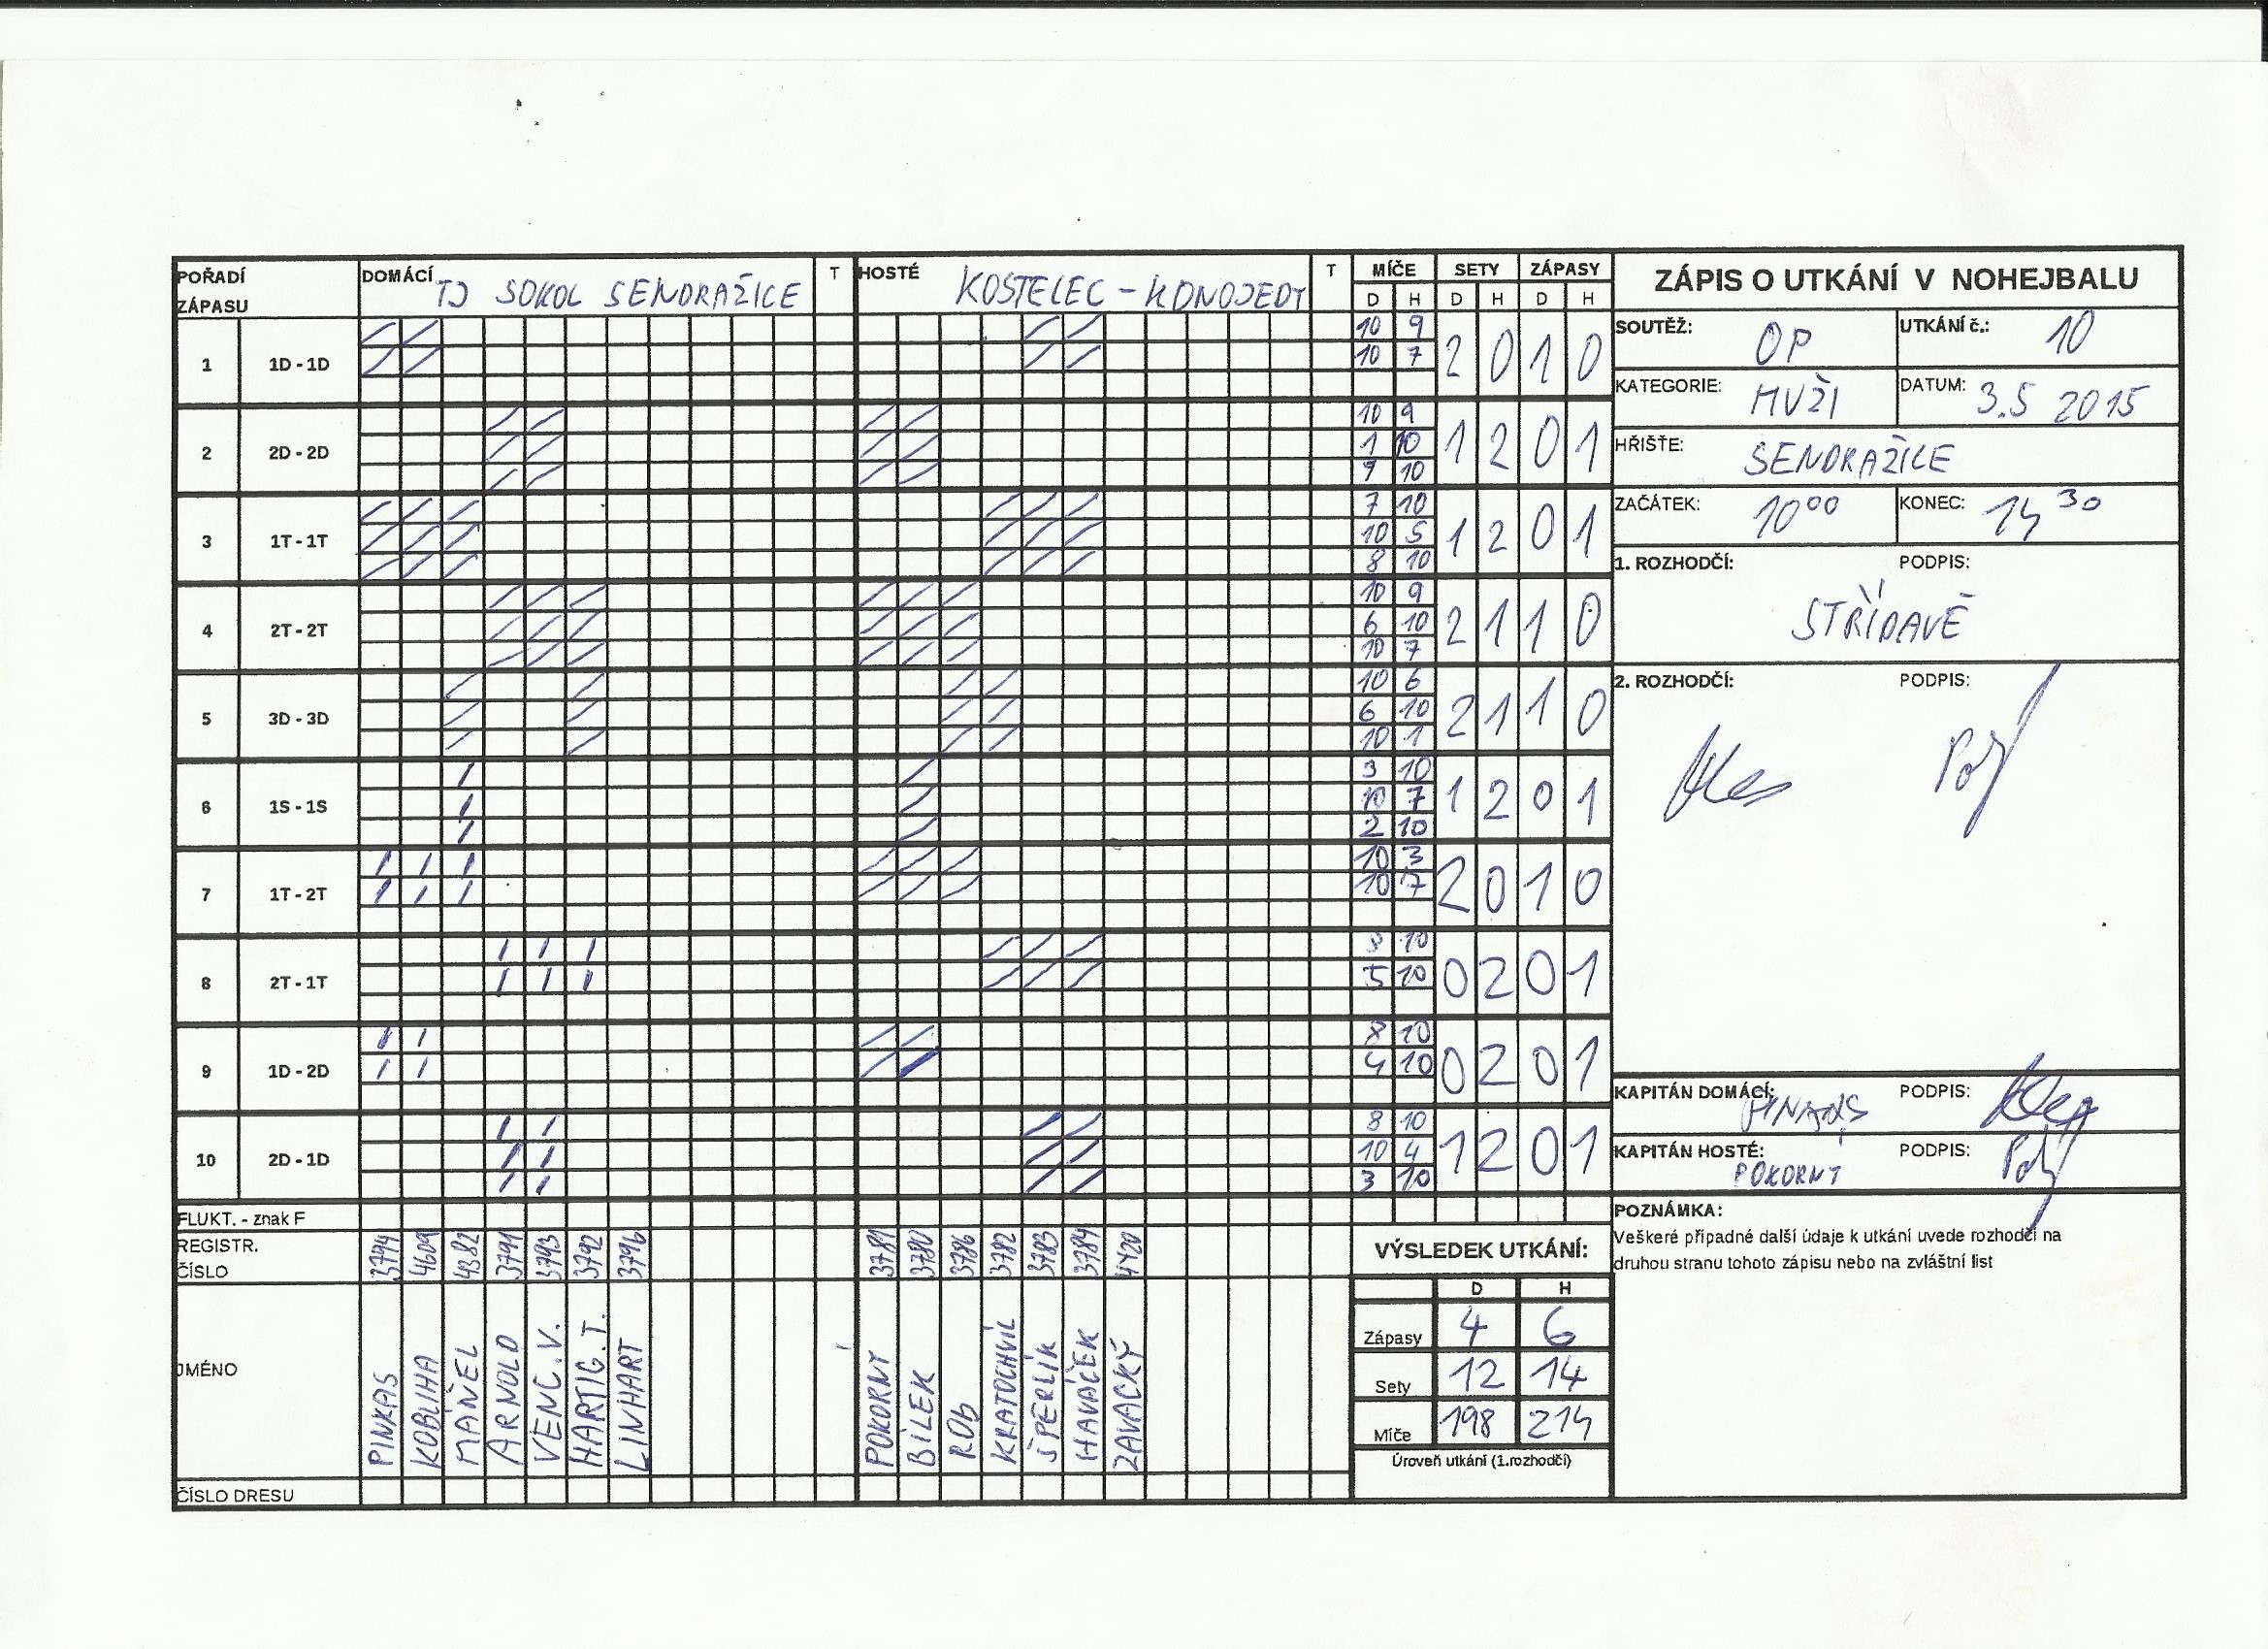 POŘADÍ ZÁPASU DOMÁCÍ TJ SOKOL SENDRAŽICE T HOSTÉ KOSTELEC - KONOJEDY T MÍČE SETY ZÁPASY
D H D H D H
ZÁPIS O UTKÁNÍ V NOHEJBALU
SOUTĚŽ: OP UTKÁNÍ č.: 10
KATEGORIE: MUŽI DATUM: 3.5 2015
HŘIŠTE: SENDRAŽICE
ZAČÁTEK: 10 00 KONEC: 14 30
1. ROZHODČÍ: PODPIS:
STŘÍDAVĚ
2. ROZHODČÍ: PODPIS:
KAPITÁN DOMÁCÍ: PINKAS PODPIS:
KAPITÁN HOSTÉ: POKORNÝ PODPIS:
POZNÁMKA:
Veškeré případné další údaje k utkání uvede rozhodčí na
druhou stranu tohoto zápisu nebo na zvláštní list
1 1D - 1D 2 0 1 0
10 9
10 7
2 2D - 2D 1 2 0 1
10 9
1 10
7 10
3 1T - 1T 1 2 0 1
7 10
10 5
8 10
4 2T - 2T 2 1 1 0
10 9
6 10
10 7
5 3D - 3D 2 1 1 0
10 6
6 10
10 1
6 1S - 1S 1 2 0 1
3 10
10 7
2 10
7 1T - 2T 2 0 1 0
10 3
10 7
8 2T - 1T 0 2 0 1
10
5 10
9 1D - 2D 0 2 0 1
8 10
4 10
10 2D - 1D 1 2 0 1
8 10
10 4
3 10
FLUKT. - znak F
REGISTR. ČÍSLO 3794 4609 4382 3791 3793 3792 3796 3781 3780 3786 3782 3783 3784 4420
JMÉNO PINKAS KOBLIHA MAŇEL ARNOLD VENC. V. HARTIG. T. LINHART POKORNÝ BÍLEK ROB KRATOCHVÍL ŠPERLÍK HAVÁČEK ZAVACKÝ
ČÍSLO DRESU
VÝSLEDEK UTKÁNÍ:
D H
Zápasy 4 6
Sety 12 14
Míče 198 214
Úroveň utkání (1.rozhodčí)